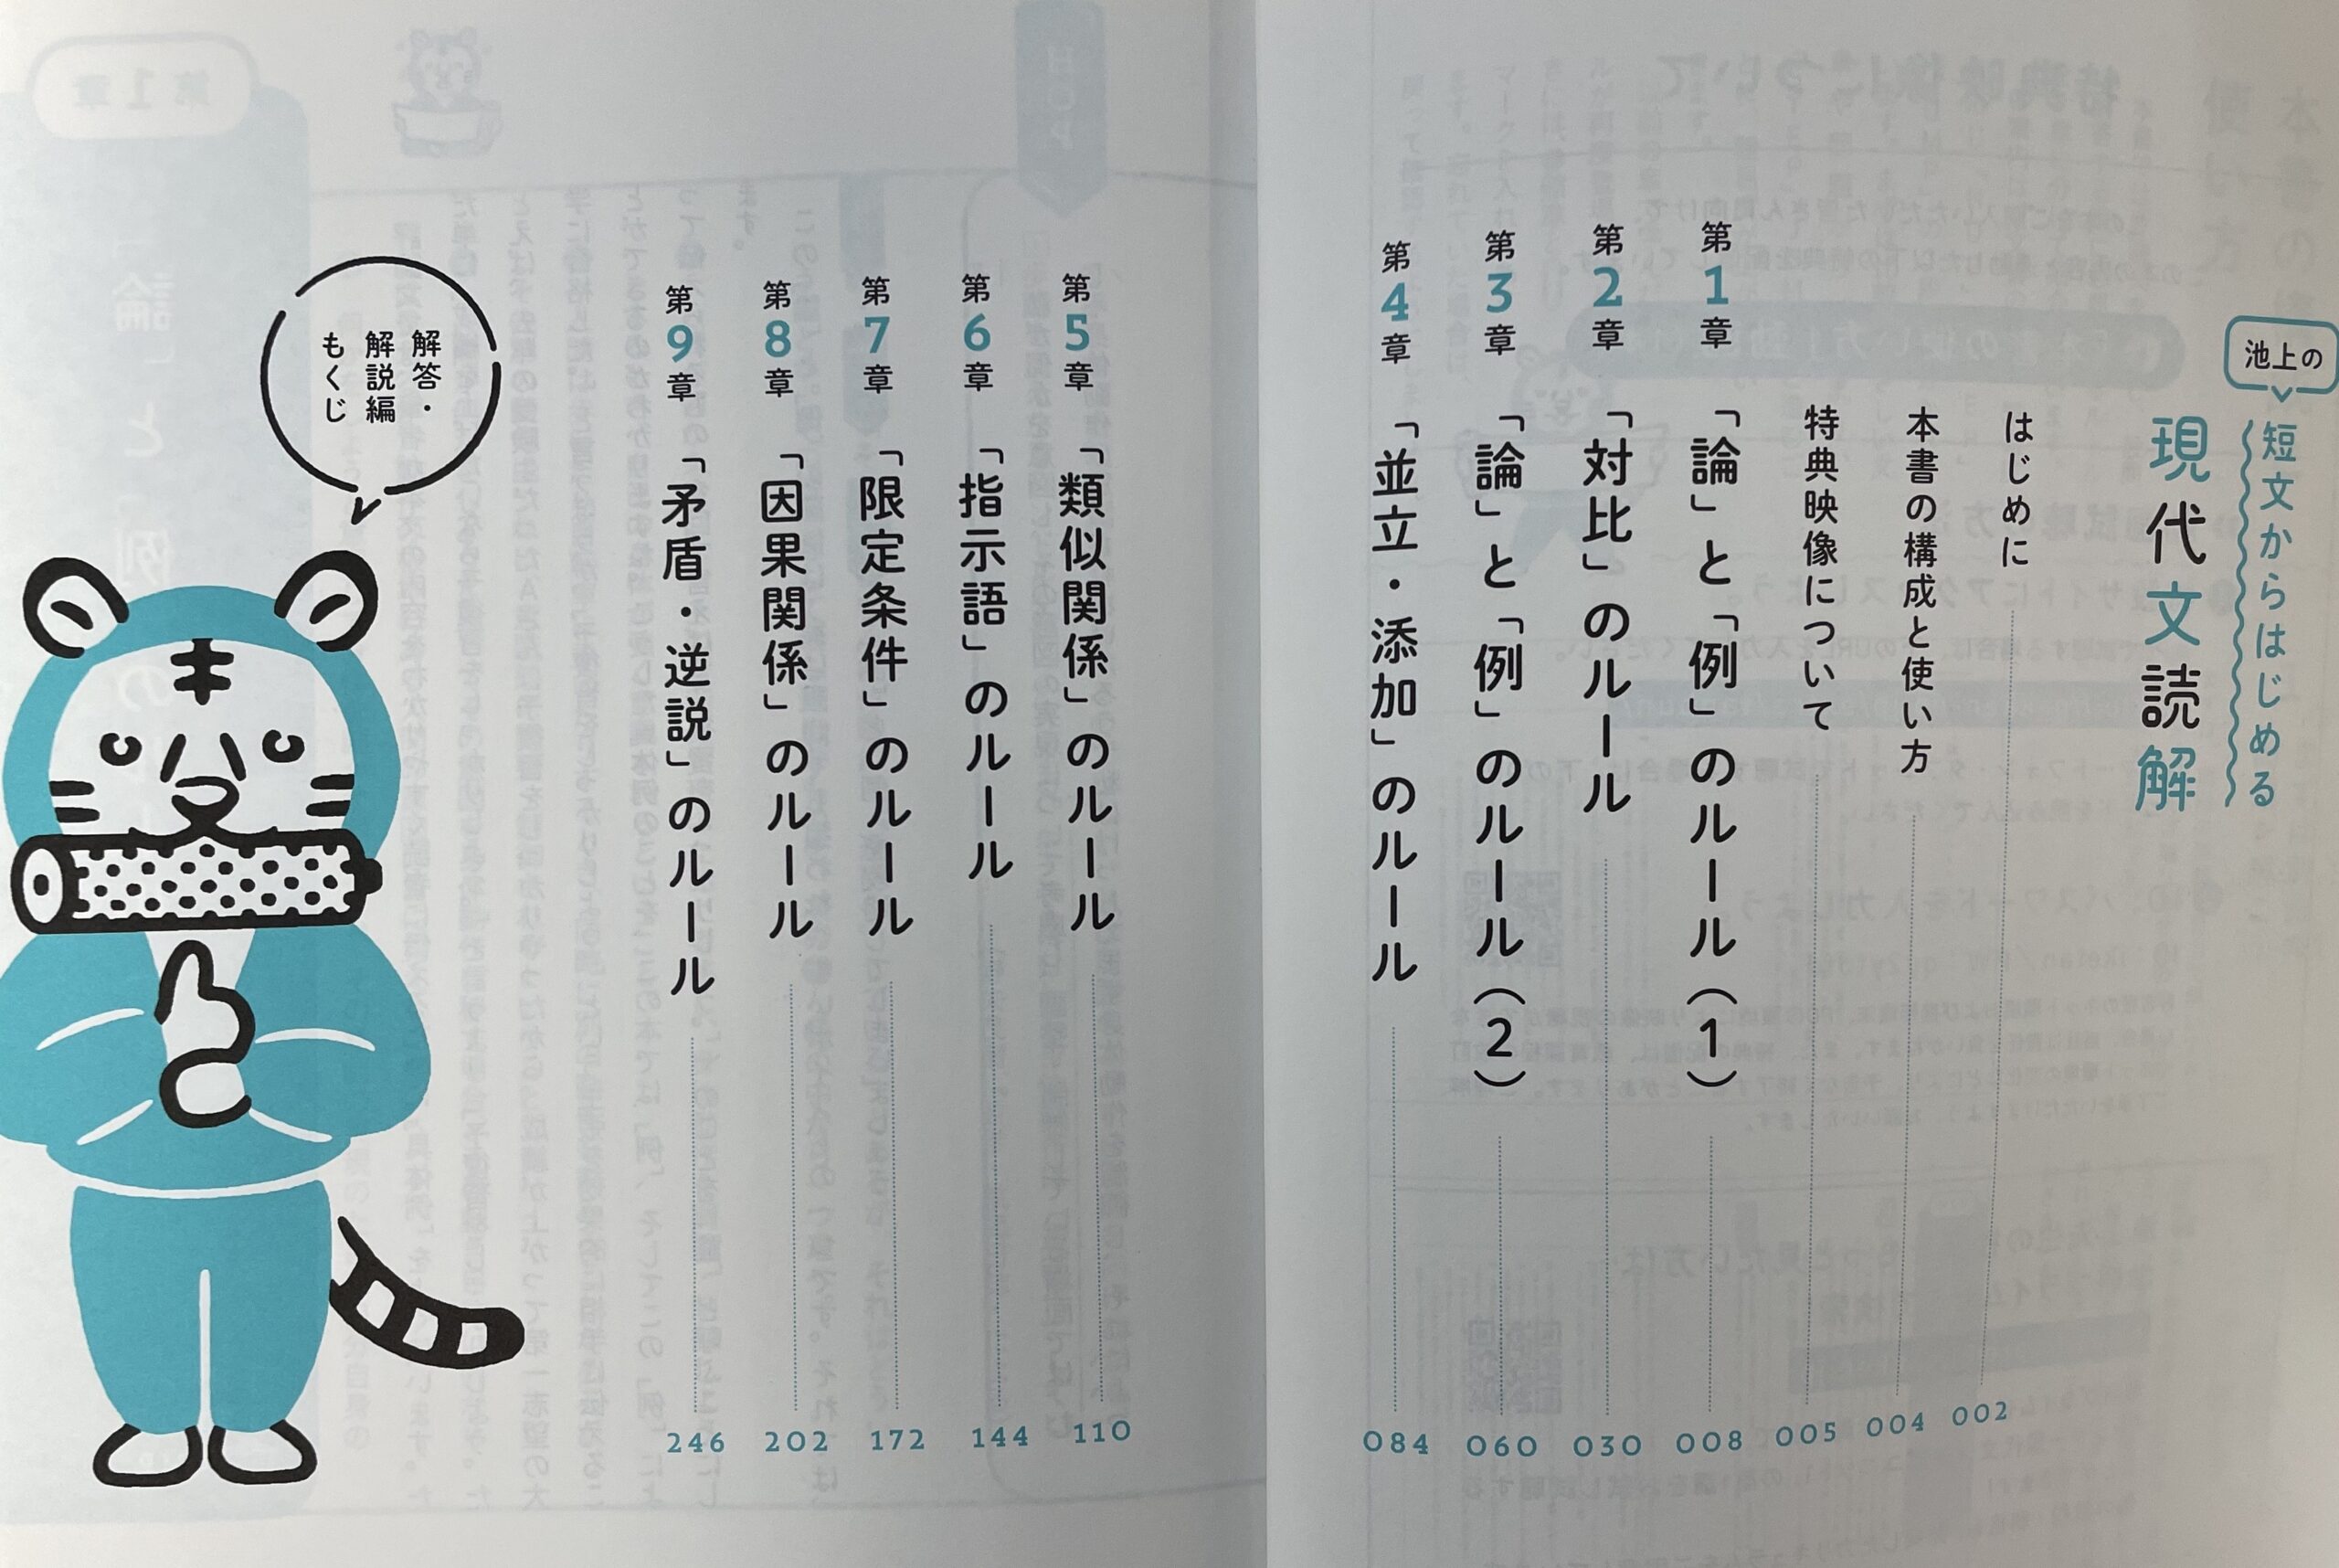 池上の
短文からはじめる
現代文読解
はじめに 002
本書の構成と使い方 004
特典映像について 005
第1章 「論」と「例」のルール(1) 008
第2章 「対比」のルール 030
第3章 「論」と「例」のルール(2) 060
第4章 「並立・添加」のルール 084
第5章 「類似関係」のルール 110
第6章 「指示語」のルール 144
第7章 「限定条件」のルール 172
第8章 「因果関係」のルール 202
第9章 「矛盾・逆説」のルール 246
解答・
解説編
もくじ